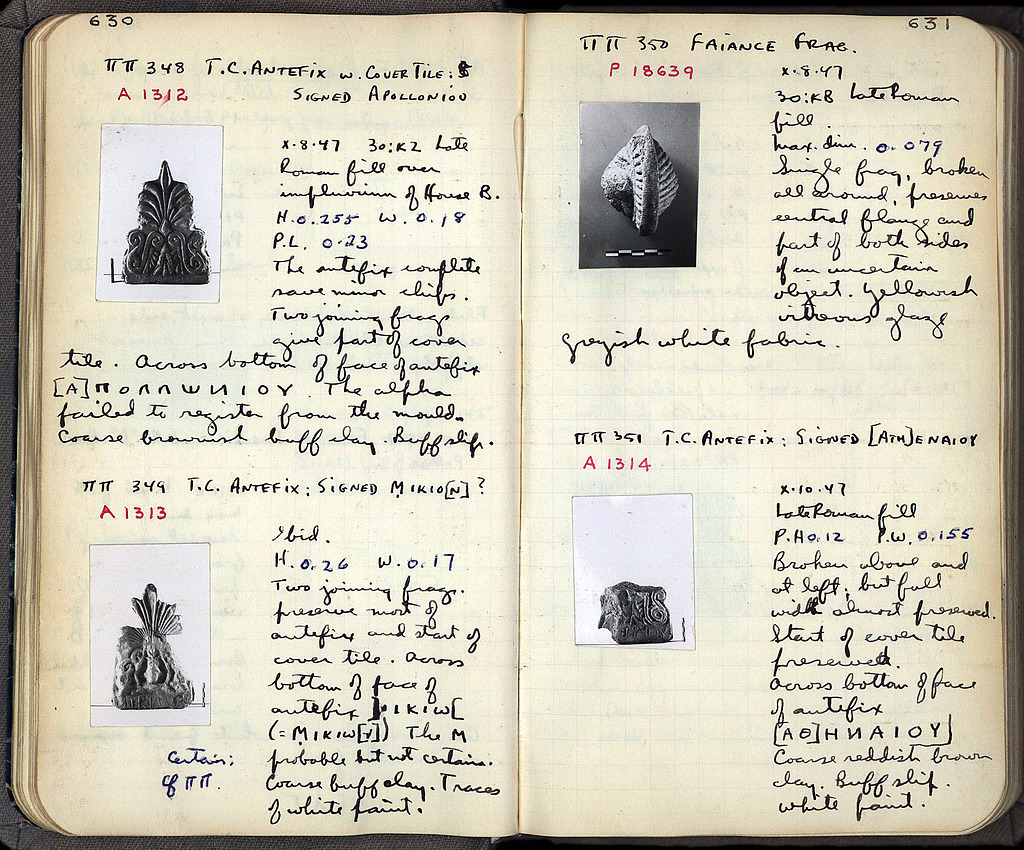 630
ΠΠ 348 T.C. ANTEFIX W. COVER TILE:
SIGNED APOLLONIOU
A 1312
X·8·47 30:KZ Late
Roman fill over
impluvium of House B.
H. 0.255 W. 0.18
P.L. 0.23
The antefix complete
save minor chips.
Two joining frags
give part of cover
tile. Across bottom of face of antefix
[Α]ΠΟΛΛΩΝΙΟΥ. The alpha
failed to register from the mould.
Coarse brownish buff clay. Buff slip.
ΠΠ 349 T.C. ANTEFIX: SIGNED MIKIO[N]?
A 1313
Ibid.
H. 0.26 W. 0.17
Two joining frags.
preserve most of
antefix and start of
cover tile. Across
bottom of face of
antefix ]ΙΚΙΩ[
The M
probable but not certain.
Coarse buff clay. Traces
of white paint.
Certain:
cf ΠΠ.
631
ΠΠ 350 FAIANCE FRAG.
P 18639
X·8·47
30:KB Late Roman
fill.
Max. dim. 0.079
Single frag, broken
all around, preserves
central flange and
part of both sides
of an uncertain
object. Yellowish
vitreous glaze
greyish white fabric.
ΠΠ 351 T.C. ANTEFIX: SIGNED [ATH]ENAIOY
A 1314
X·10·47
Late Roman fill
P.H. 0.12 P.W. 0.155
Broken above and
at left, but full
width almost preserved.
Start of cover tile
preserved.
Across bottom of face
of antefix
[ΑΘ]ΗΝΑΙΟΥ
Coarse reddish brown
clay. Buff slip.
White paint.